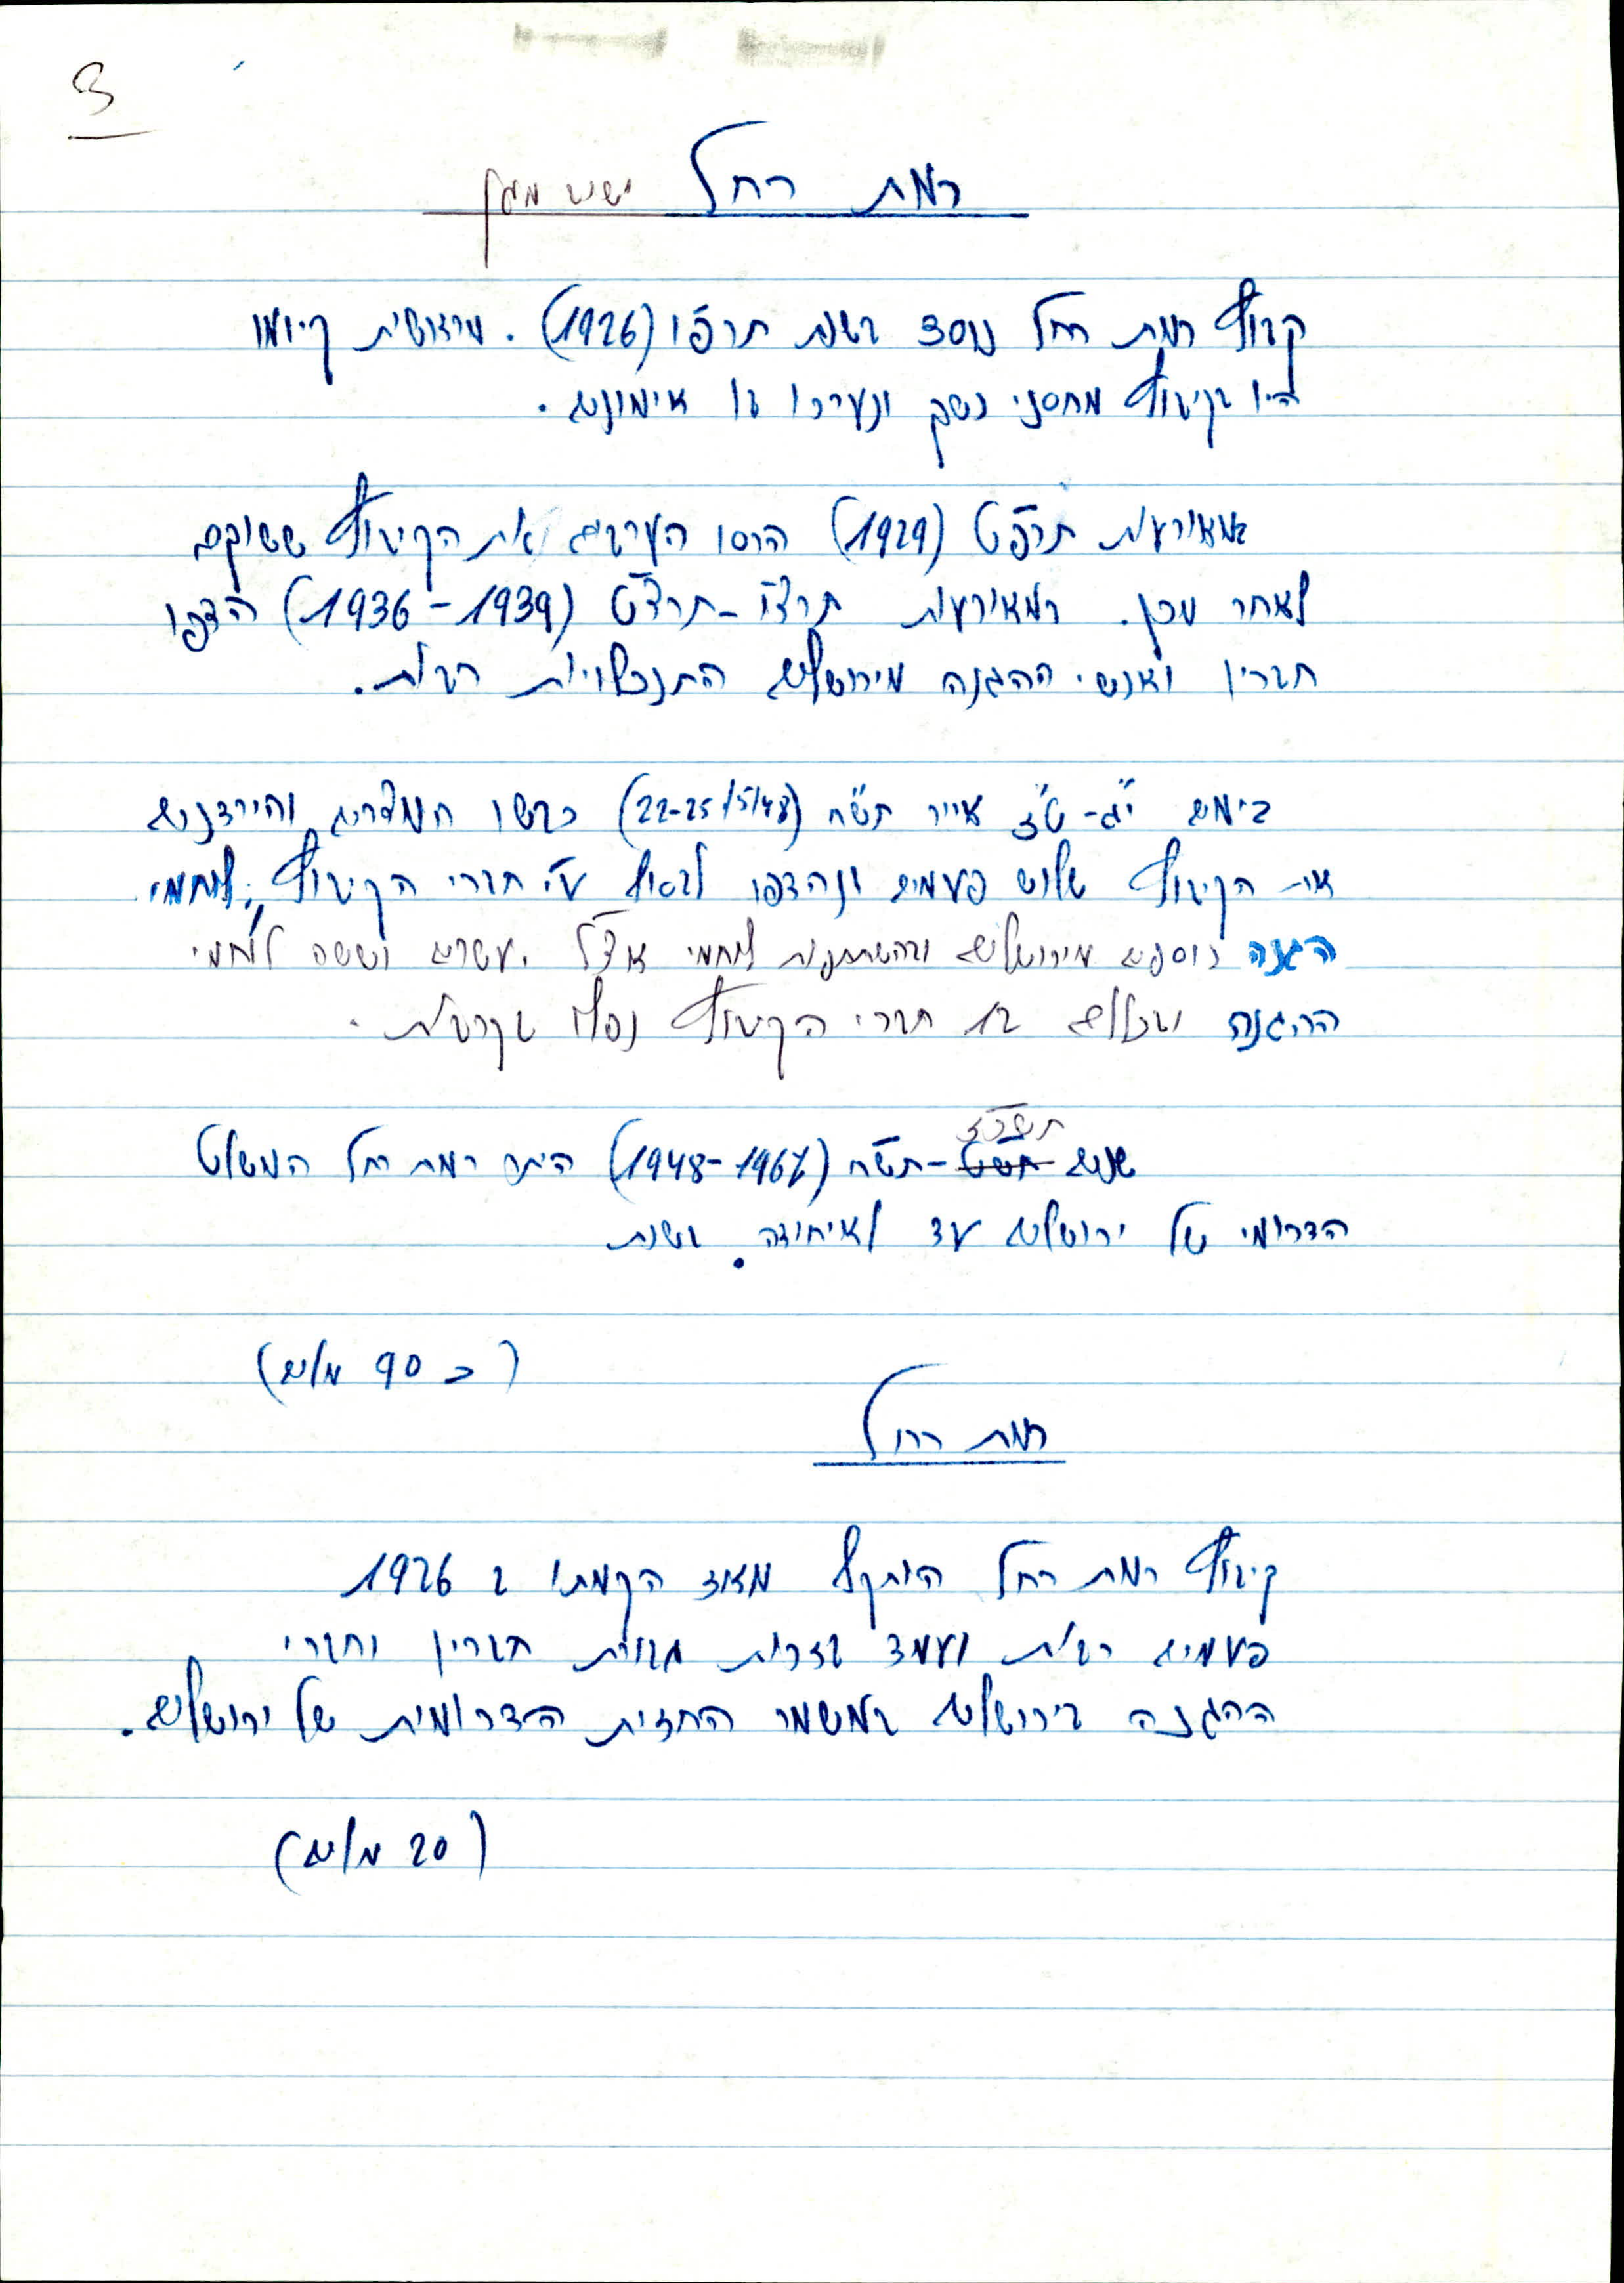 3
רמת רחל ישוב מגן
קבוץ רמת רחל נוסד בשנת תרפ"ו (1926). מראשית קיומו
היו בקיבוץ מחסני נשק ונערכו בו אימונים.
במאורעות תרפ"ט (1929) הרסו הערבים את הקיבוץ ששוקם
לאחר מכן. במאורעות תרצ"ו-תרצ"ט (1936-1939) הדפו
חבריו ואנשי ההגנה מירושלים התנפלויות רבות.
בימים י"ג-ט"ז אייר תש"ח (22-25/5/48) כבשו המצרים והירדנים
את הקיבוץ שלוש פעמים ונהדפו לבסוף ע"י חברי הקיבוץ, לוחמי
הגנה נוספים מירושלים ובהשתתפות לוחמי אצ"ל. עשרים וששה לוחמי
ההגנה ובכללם 12 חברי הקיבוץ נפלו בקרבות.
תשכ"ז
שנים תש"ח (1948-1967) היתה רמת רחל המשלט
הדרומי של ירושלים עד לאיחודה. בשנת
(כ 90 מלים)
רמת רחל
קיבוץ רמת רחל הותקף מאז הקמתו ב 1926
פעמים רבות ועמד בזכות גבורת חבריו וחברי
ההגנה בירושלים במשמר החזית הדרומית של ירושלים.
(20 מלים)